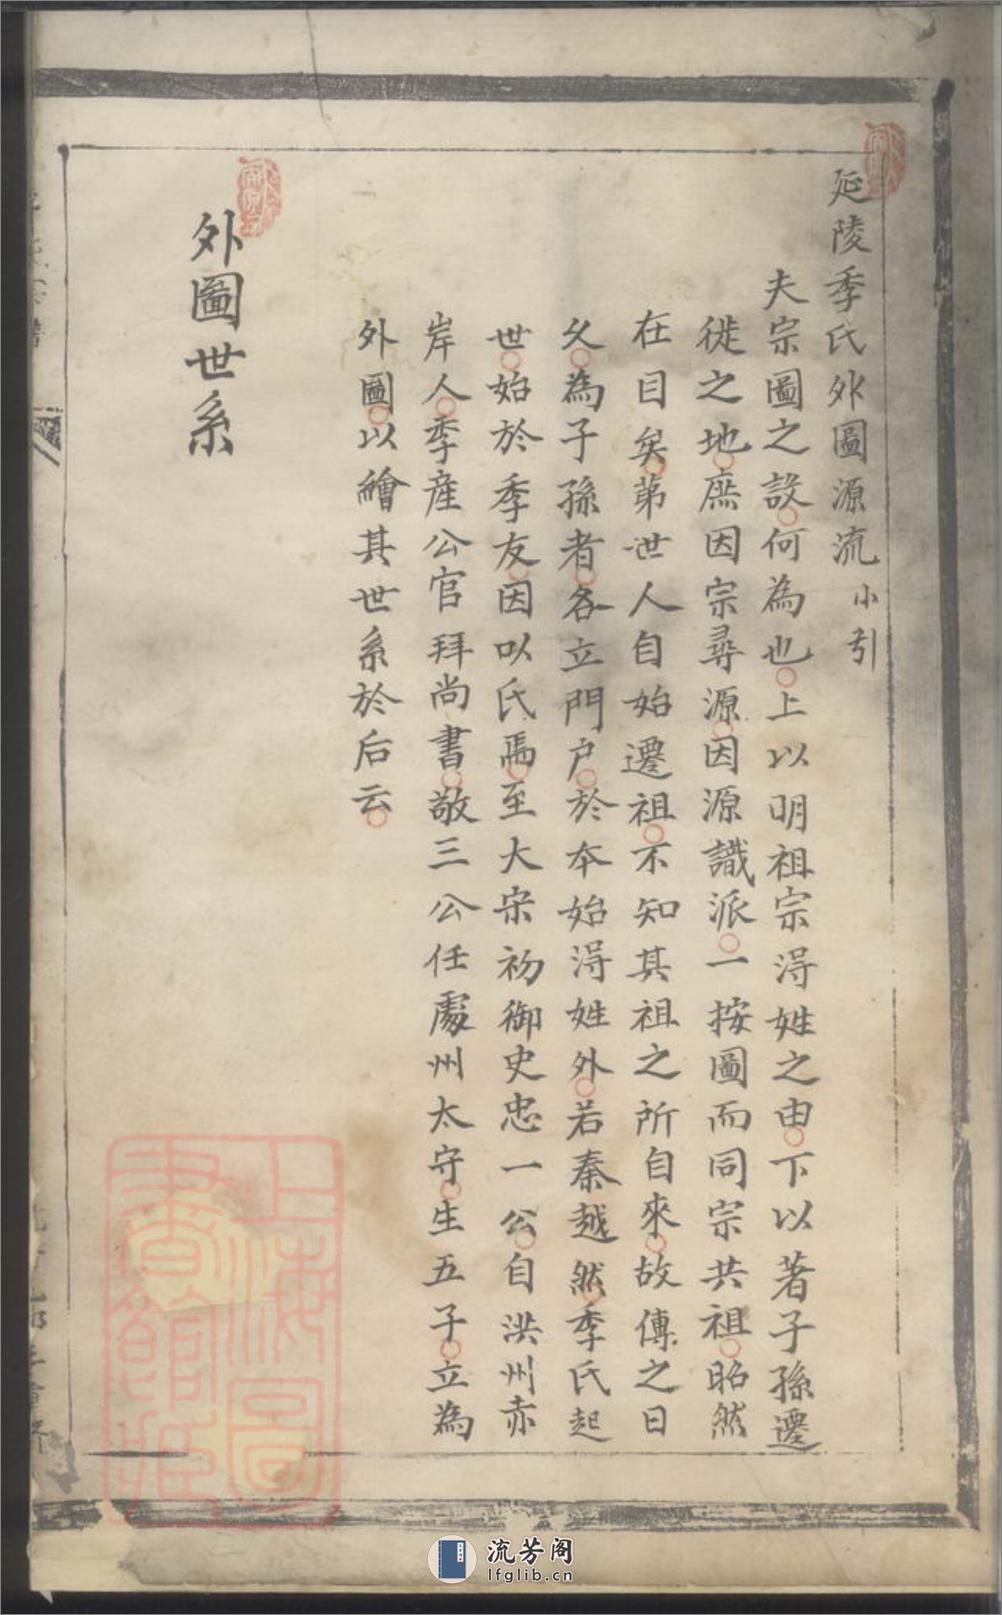 延陵季氏外圖源流小引
夫宗圖之設何為也上以明祖宗淂姓之由下以著子孫遷
徙之地庶因宗尋源因源識派一按圖而同宗共祖昭然
在目矣苐世人自始遷祖不知其祖之所自來故傳之日
久為子孫者各立門户於本始淂姓外若秦越然季氏起
世始於季友因以氏焉至大宋初御史忠一公自洪州赤
岸人季産公官拜尚書敬三公任處州太守生五子立為
外圖以繪其世系於后云
外圖世系
上海圖
書館藏
流芳阁
lfglib.cn